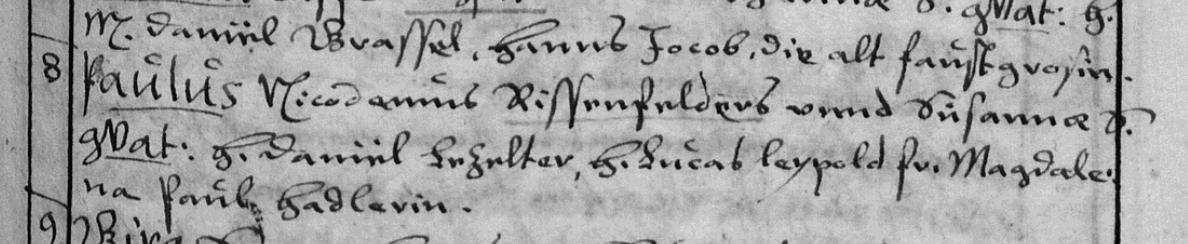 gVat: H.
M. Daniel Brassel, Hanns Jocob, die alt faustgrosin.
8 Paulus Nicodemus Rissenfelders vnnd Susannæ S.
gVat: H. Daniel Lehelter, H. Lucas Leypold fr. Magdale:
na Paul Hadlerin.
9